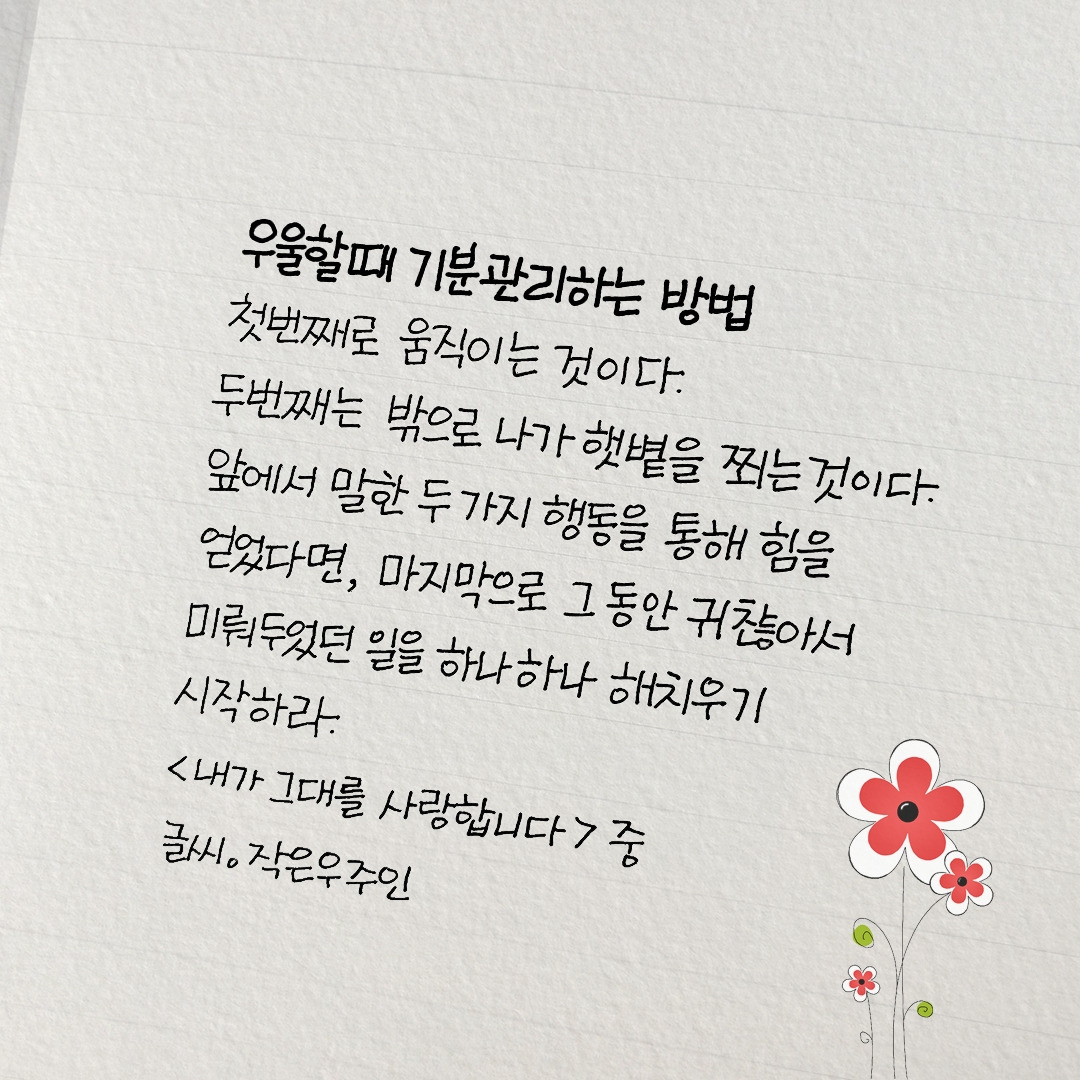 우울할때 기분관리하는 방법
첫번째로 움직이는 것이다.
두번째는 밖으로 나가 햇볕을 쬐는것이다.
앞에서 말한 두 가지 행동을 통해 힘을
얻었다면, 마지막으로 그 동안 귀찮아서
미뤄두었던 일을 하나하나 해치우기
시작하라.
<내가 그대를 사랑합니다> 중
글씨。작은우주인